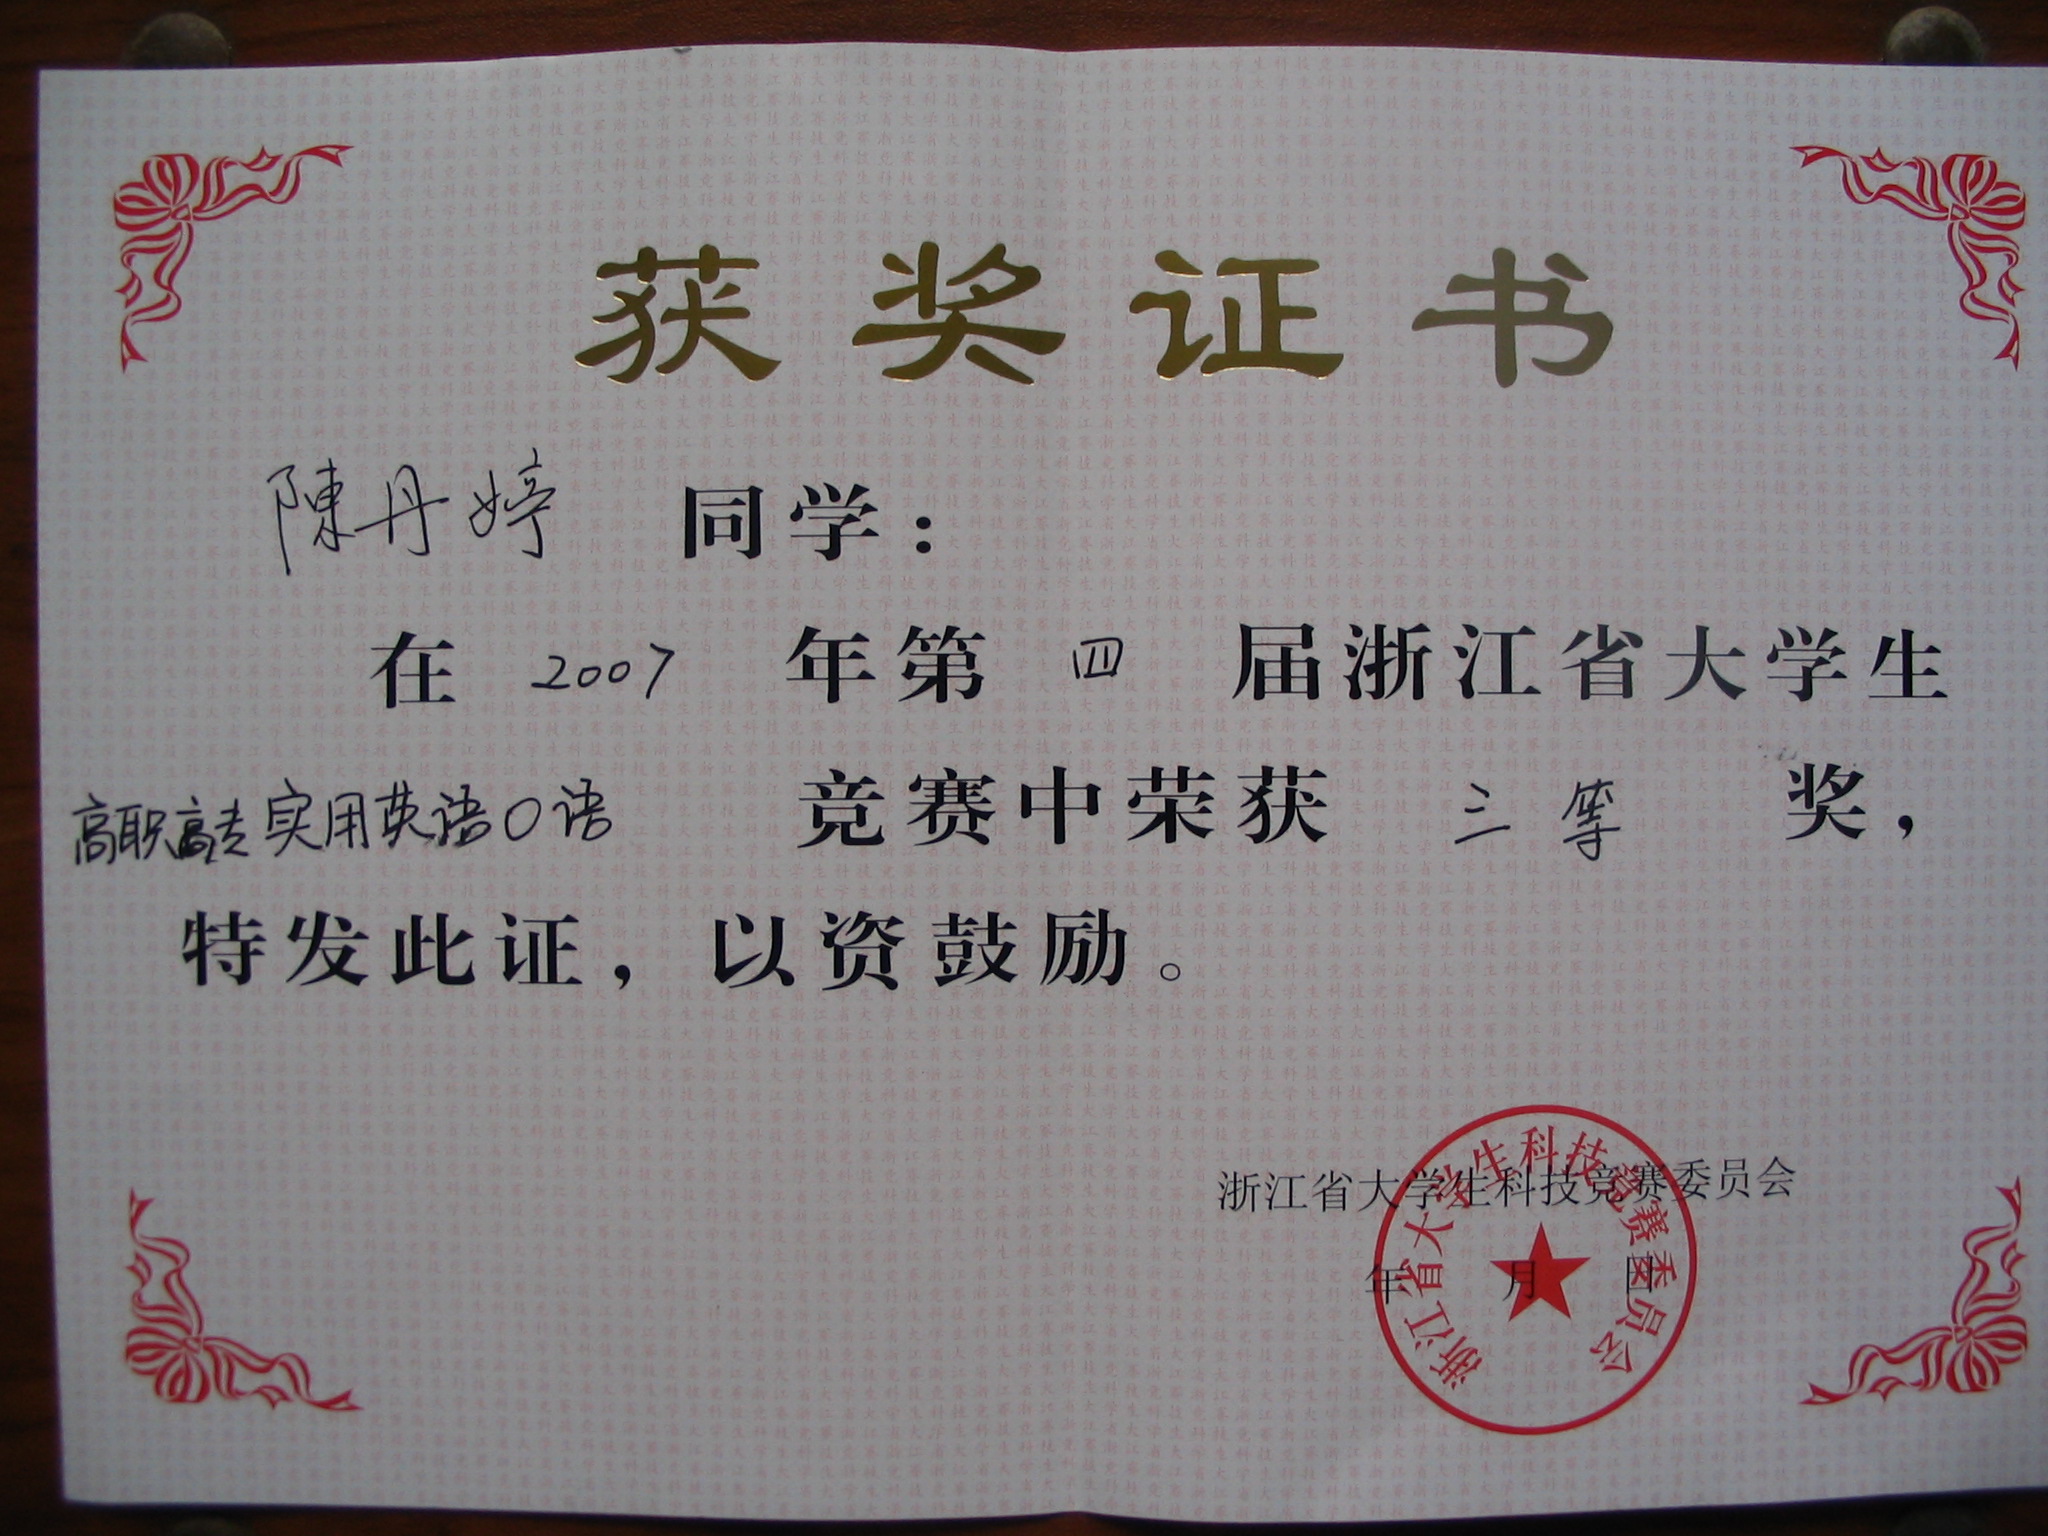 获奖证书
陳丹婷 同学：
在 2007 年第 四 届浙江省大学生
高职高专实用英语口语 竞赛中荣获 三等 奖，
特发此证，以资鼓励。
浙江省大学生科技竞赛委员会
年 月 日
浙江省大学生科技竞赛委员会